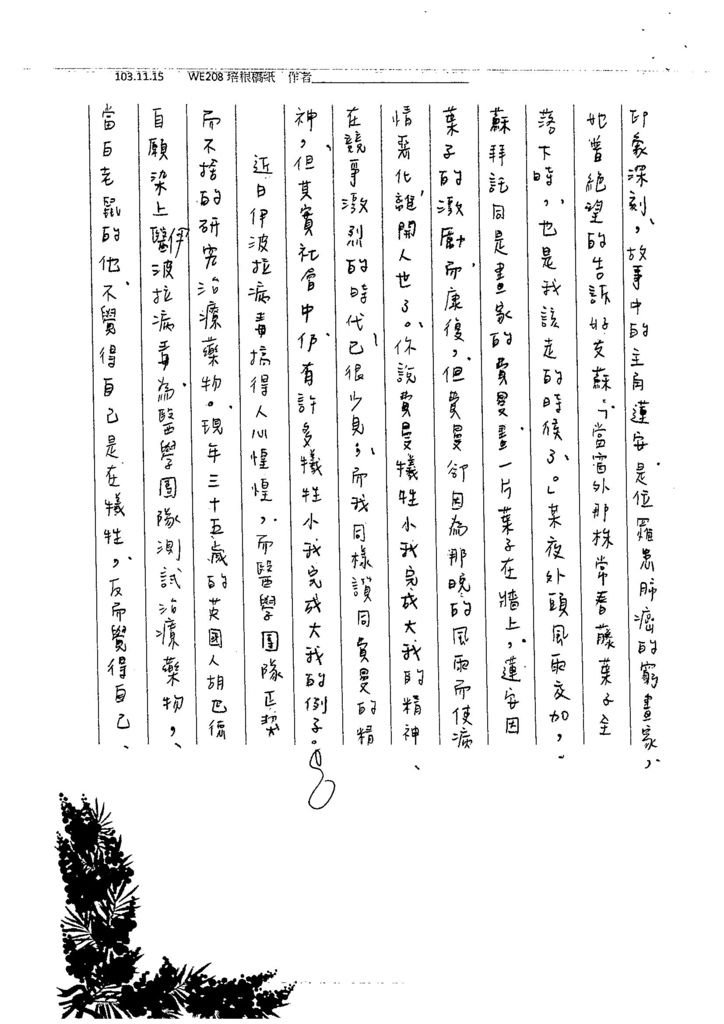 103.11.15 WE208 培根稿紙 作者
印象深刻，故事中的主角蓮安是位罹患肺癌的窮畫家，
她曾絕望的告訴好友蘇：「當窗外那株常春藤葉子全
落下時，也是我該走的時候了。」某夜外頭風雨交加，
蘇拜託同是畫家的費曼畫一片葉子在牆上，蓮安因
葉子的激勵而康復，但費曼卻因為那晚的風雨而使病
情惡化離開人世了。你說費曼犧牲小我完成大我的精神、
在競爭激烈的時代已很少見，而我同樣讚同費曼的精
神，但其實社會中仍有許多犧牲小我完成大我的例子。
近日伊波拉病毒搞得人心惶惶，而醫學團隊正契
而不捨的研究治療藥物。現年三十五歲的英國人胡巴德
自願染上伊波拉病毒為醫學團隊測試治療藥物，
當白老鼠的他不覺得自己是在犧牲，反而覺得自己、